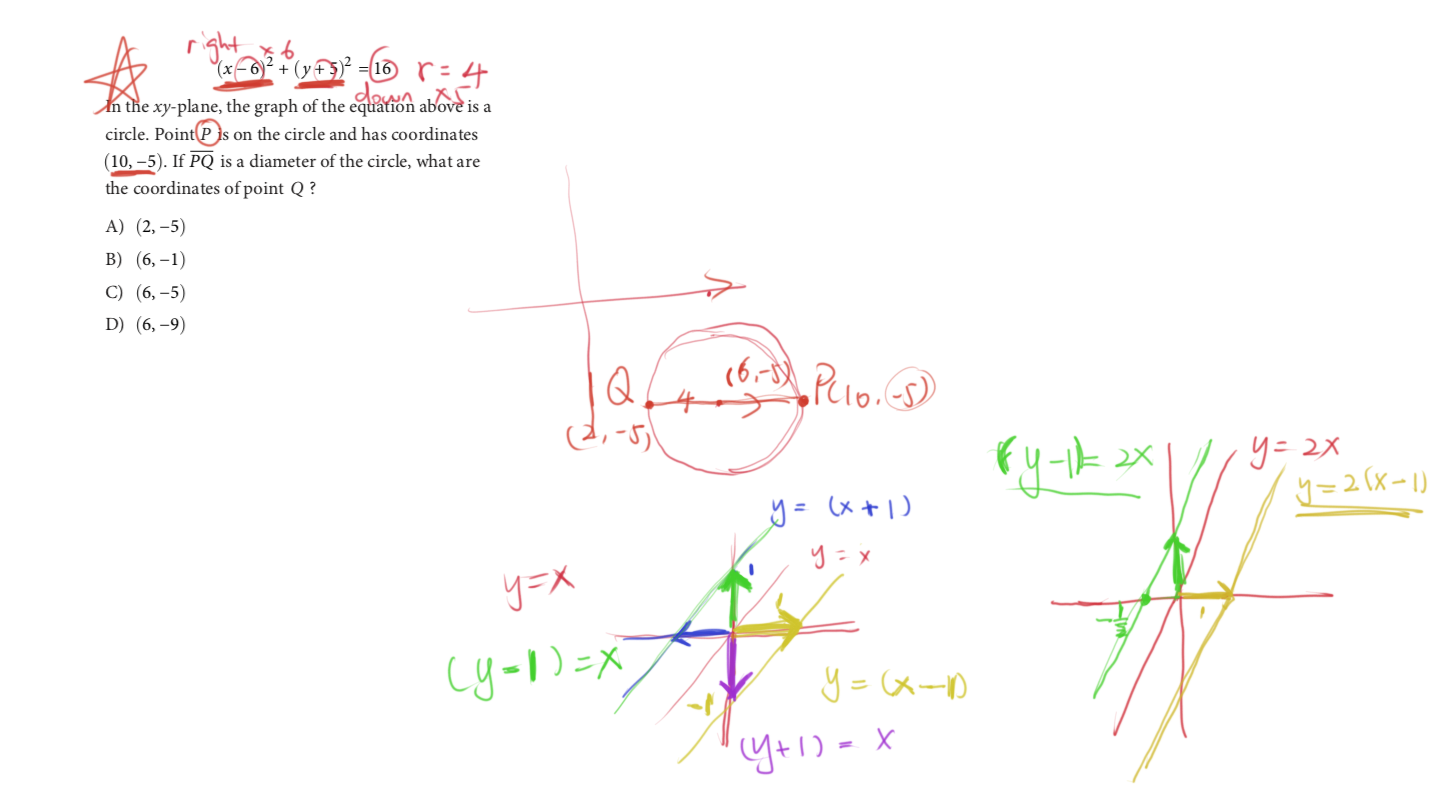 right x 6
(x − 6)² + (y + 5)² = 16 r = 4
down x5
In the xy-plane, the graph of the equation above is a
circle. Point P is on the circle and has coordinates
(10, −5). If PQ is a diameter of the circle, what are
the coordinates of point Q ?
A) (2, −5)
B) (6, −1)
C) (6, −5)
D) (6, −9)
Q 4 (6, -5) P(10, -5)
(2, -5)
y = (x + 1)
y = x
y = x
1
1
(y - 1) = x
y = (x - 1)
-1
(y + 1) = x
(y - 1) = 2x
y = 2x
y = 2(x - 1)
1